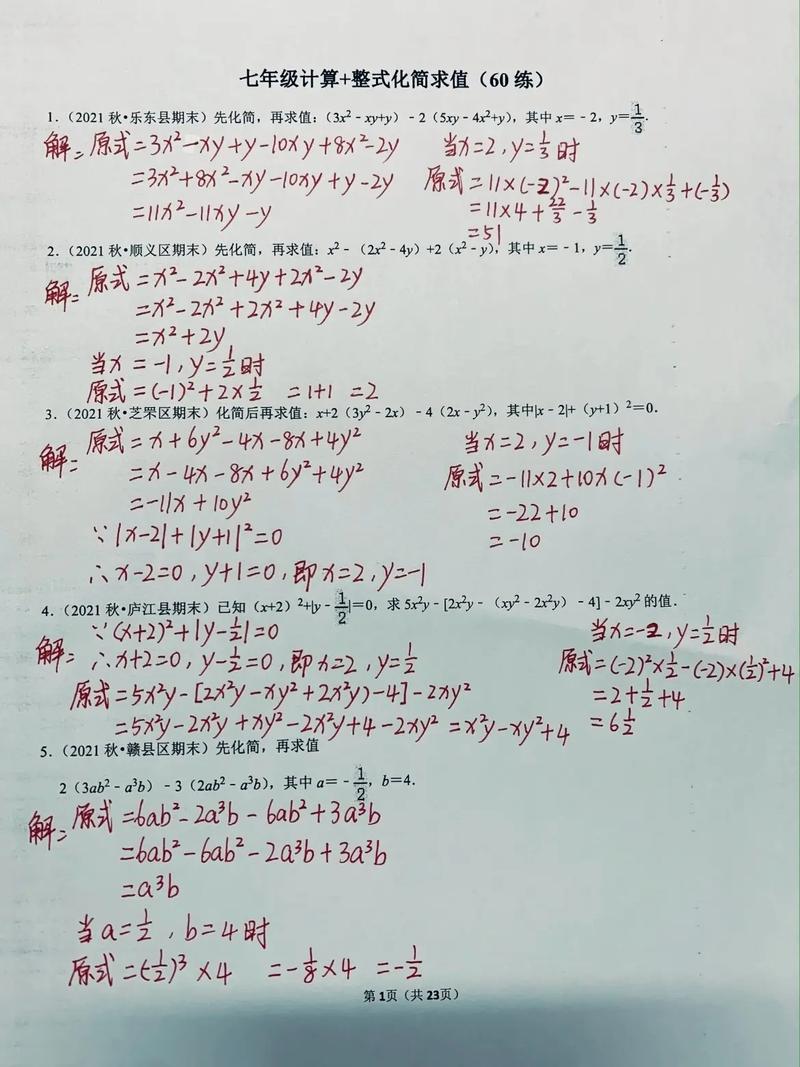 七年级计算+整式化简求值（60练）
1．（2021秋•乐东县期末）先化简，再求值：（3x²﹣xy+y）﹣2（5xy﹣4x²+y），其中x＝﹣2，y＝1/3．
解：原式=3x²-xy+y-10xy+8x²-2y
=3x²+8x²-xy-10xy+y-2y
=11x²-11xy-y
当x=2，y=1/3时
原式=11×(-2)²-11×(-2)×1/3+(-1/3)
=11×4+22/3-1/3
=51
2．（2021秋•顺义区期末）先化简，再求值：x²﹣（2x²﹣4y）+2（x²﹣y），其中x＝﹣1，y＝1/2．
解：原式=x²-2x²+4y+2x²-2y
=x²-2x²+2x²+4y-2y
=x²+2y
当x=-1，y=1/2时
原式=(-1)²+2×1/2 =1+1 =2
3．（2021秋•芝罘区期末）化简后再求值：x+2（3y²﹣2x）﹣4（2x﹣y²），其中|x﹣2|+（y+1）²＝0．
解：原式=x+6y²-4x-8x+4y²
=x-4x-8x+6y²+4y²
=-11x+10y²
∵|x-2|+|y+1|²=0
∴x-2=0，y+1=0，即x=2，y=-1
当x=2，y=-1时
原式=-11×2+10×(-1)²
=-22+10
=-10
4．（2021秋•庐江县期末）已知（x+2）²+|y﹣1/2|＝0，求5x²y﹣[2x²y﹣（xy²﹣2x²y）﹣4]﹣2xy²的值．
解：∵(x+2)²+|y-1/2|=0
∴x+2=0，y-1/2=0，即x=2，y=1/2
原式=5x²y-[2x²y-xy²+2x²y)-4]-2xy²
=5x²y-2x²y+xy²-2x²y+4-2xy² =x²y-xy²+4
当x=-2，y=1/2时
原式=(-2)²×1/2-(-2)×(1/2)²+4
=2+1/2+4
=6 1/2
5．（2021秋•赣县区期末）先化简，再求值
2（3ab²﹣a³b）﹣3（2ab²﹣a³b），其中a＝﹣1/2，b＝4．
解：原式=6ab²-2a³b-6ab²+3a³b
=6ab²-6ab²-2a³b+3a³b
=a³b
当a=1/2，b=4时
原式=(-1/2)³×4 =-1/8×4 =-1/2
第1页（共23页）